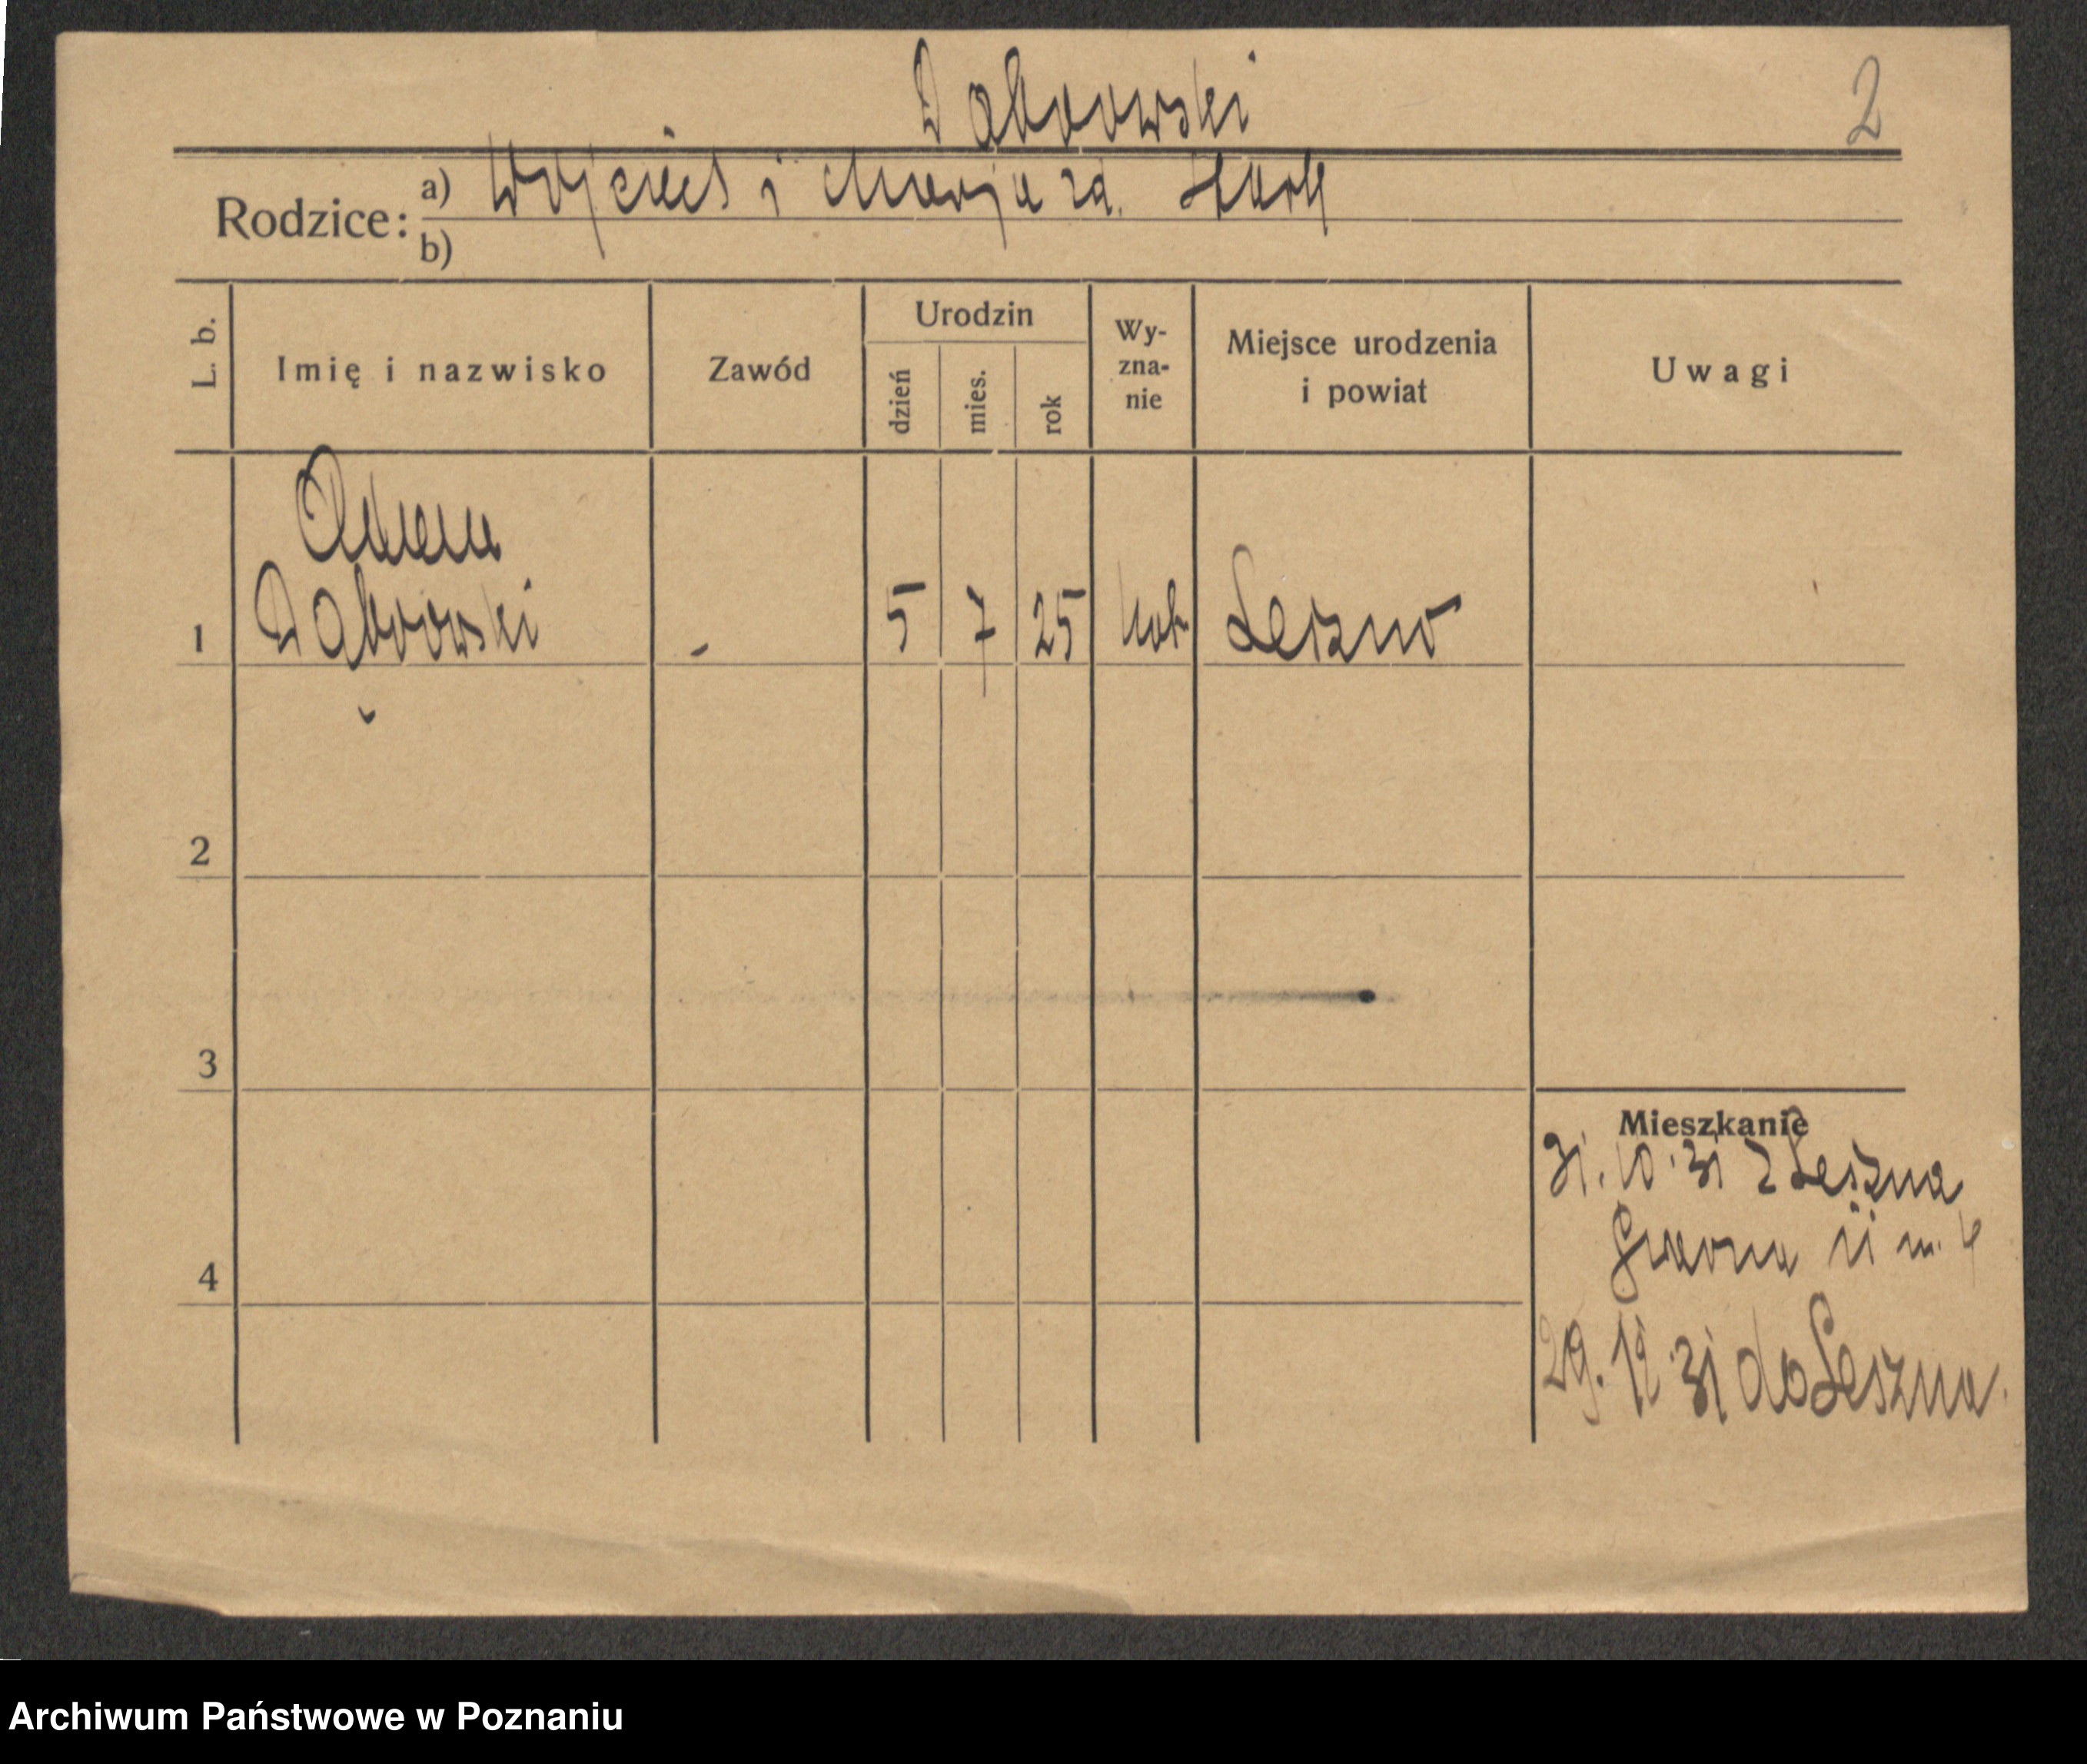 Dąbrowski
2
Rodzice: a) Wojciech i Marja zd.
b)
L. b. Imię i nazwisko Zawód Urodzin dzień mies. rok Wy-zna-nie Miejsce urodzenia i powiat Uwagi
Adam
1 Dąbrowski - 5 7 25 kat. Leszno
2
3
Mieszkanie
31.10.31 z Leszna
Gwarna 11 m. 4
4
29.12.31 do Leszna.
Archiwum Państwowe w Poznaniu